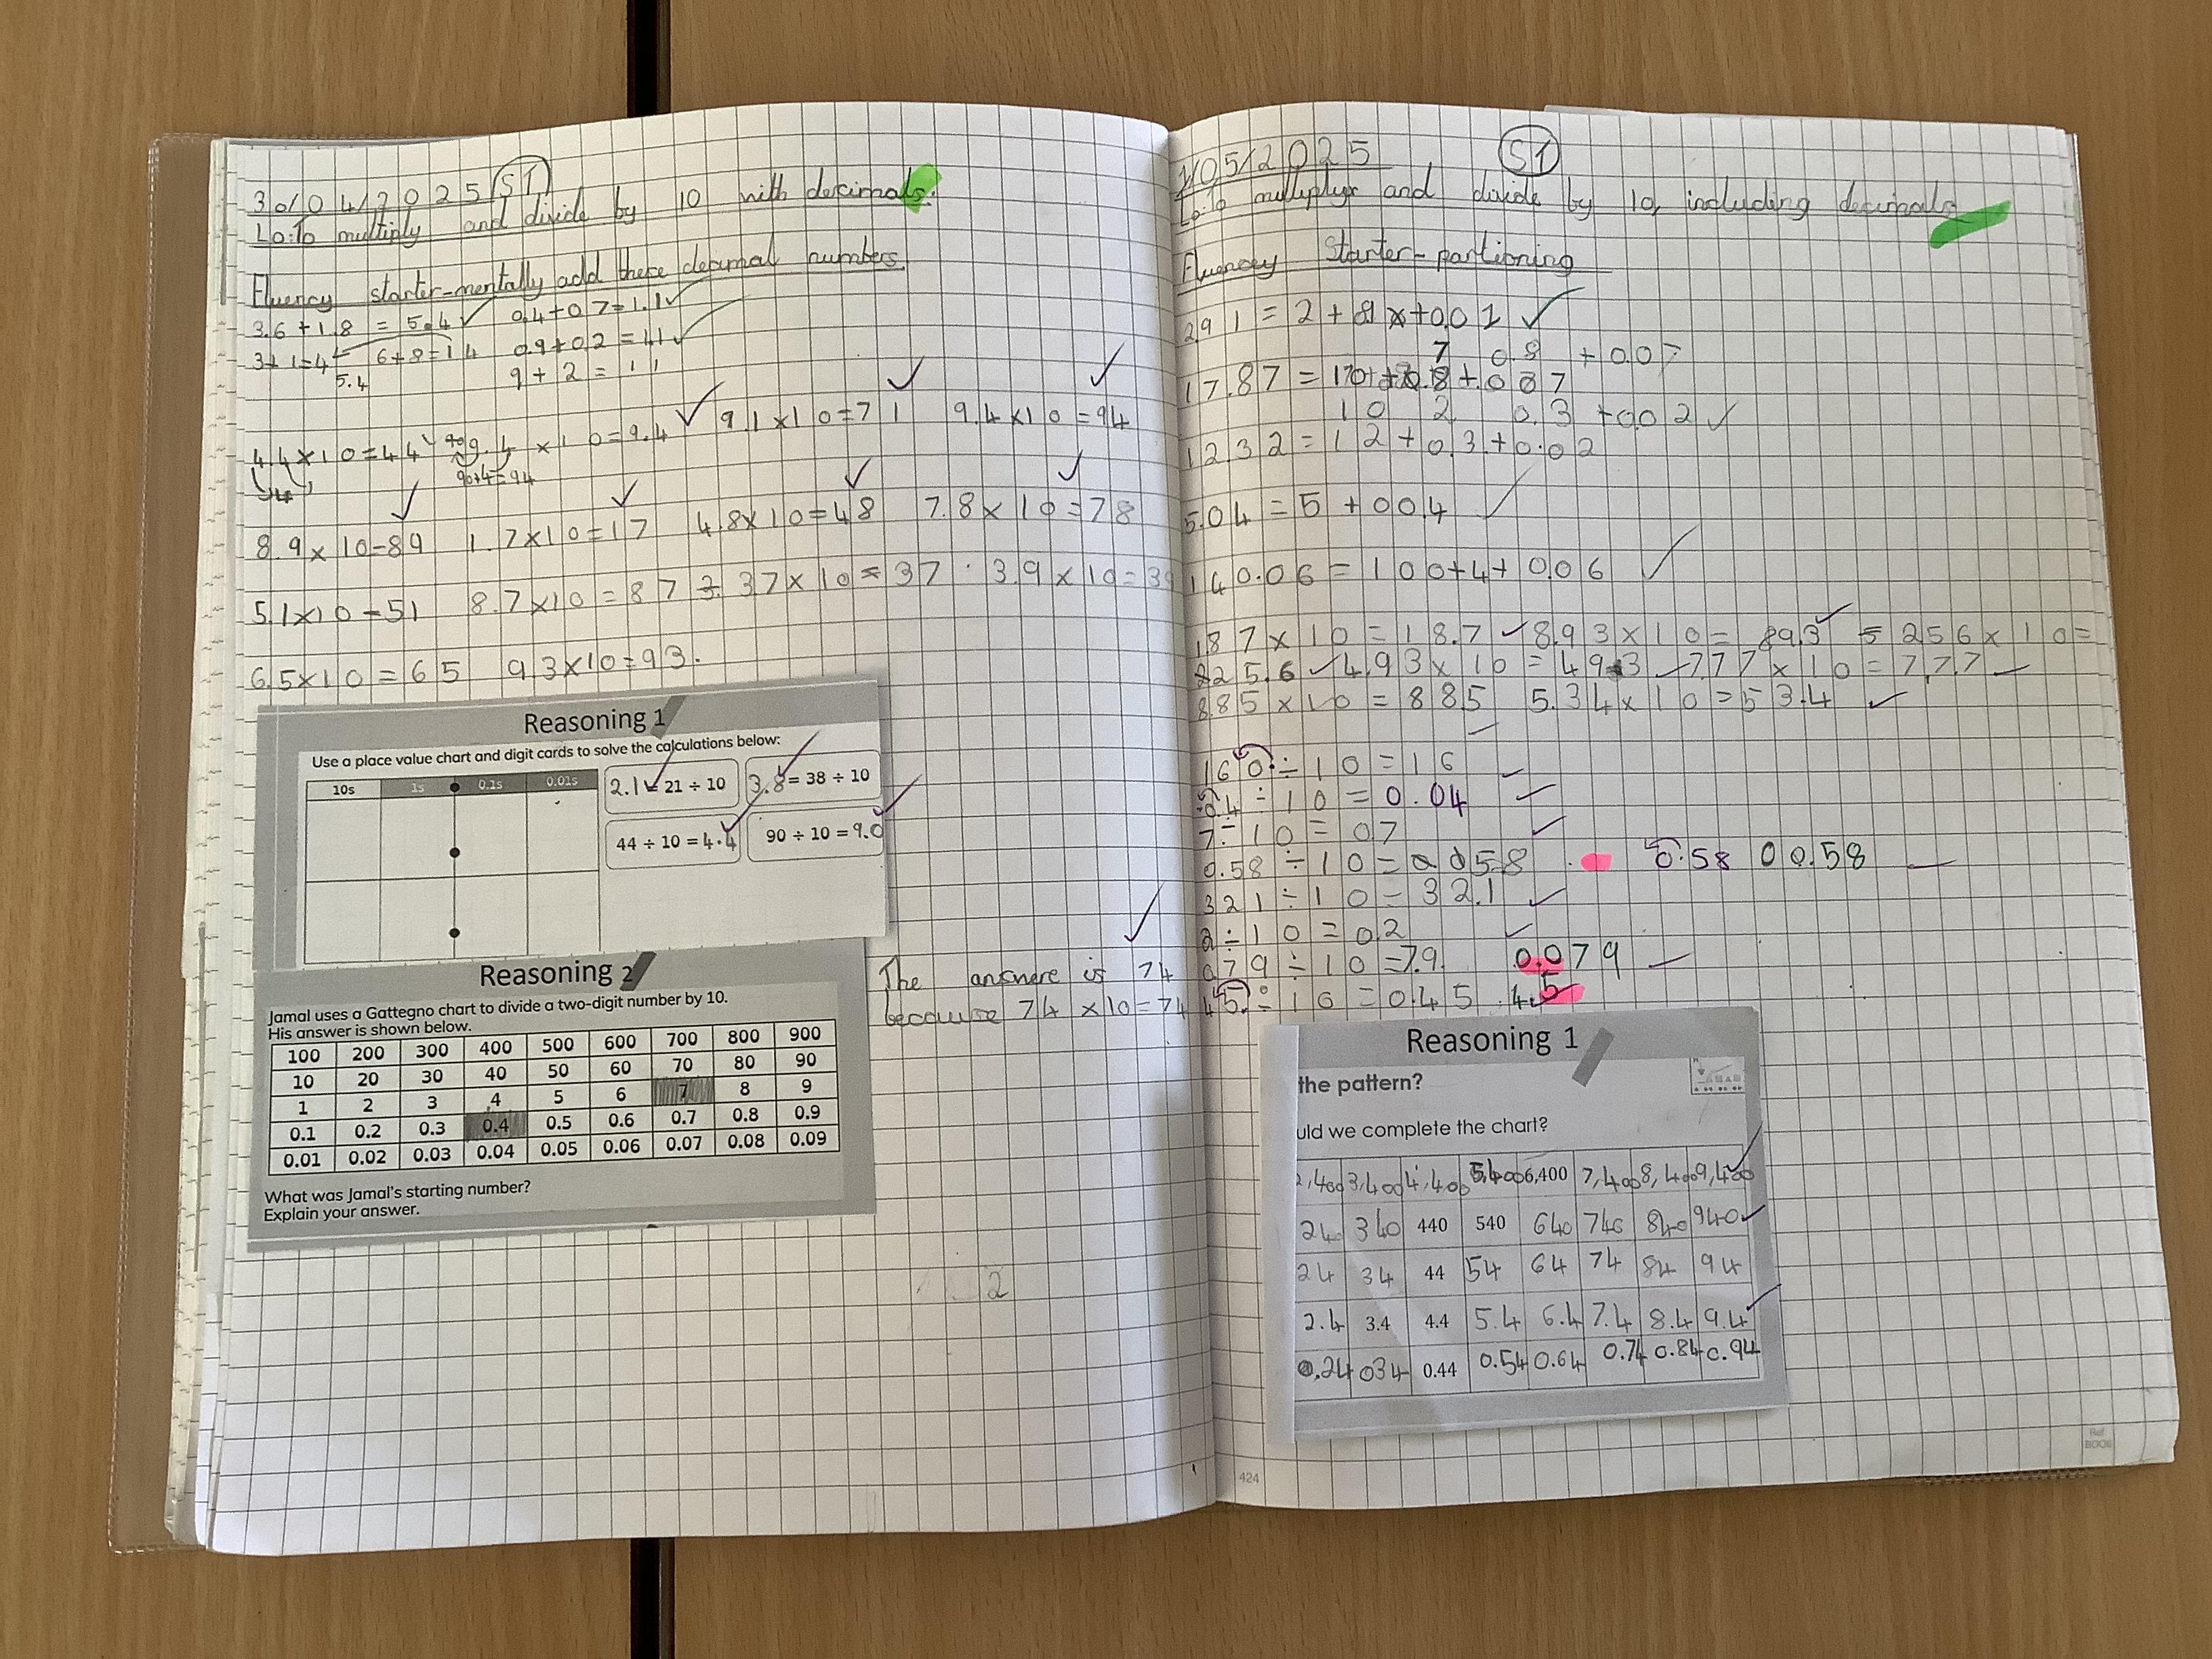 30/04/2025 S1
LO:To multiply and divide by 10 with decimals.
Fluency starter-mentally add these decimal numbers.
3.6+1.8 = 5.4 0.4+0.7=1.1
3+1=4 6+8=14 0.9+0.2=1.1
5.4 9+2=11
4.4×10=44 9.4×10=9.4 9.1×10=71 9.4×10=94
90+4=94
8.9×10=89 1.7×10=17 4.8×10=48 7.8×10=78
5.1×10=51 8.7×10=87 3.7×10=37 3.9×10=39
6.5×10=65 9.3×10=93.
Reasoning 1
Use a place value chart and digit cards to solve the calculations below:
10s 1s 0.1s 0.01s
2.1 = 21 ÷ 10 3.8 = 38 ÷ 10
44 ÷ 10 = 4.4 90 ÷ 10 = 9.0
Reasoning 2
Jamal uses a Gattegno chart to divide a two-digit number by 10.
His answer is shown below.
100 200 300 400 500 600 700 800 900
10 20 30 40 50 60 70 80 90
1 2 3 4 5 6 7 8 9
0.1 0.2 0.3 0.4 0.5 0.6 0.7 0.8 0.9
0.01 0.02 0.03 0.04 0.05 0.06 0.07 0.08 0.09
What was Jamal's starting number?
Explain your answer.
The answere is 74
because 74 ×10=74
2
1/05/2025 S1
Lo:To multiply and divide by 10, including decimals
Fluency Starter-partioning
2.91=2+
7 0.8 +0.07
17.87=
10 2 0.3 +002
12.32=12+0.3+0.02
5.04=5+004
140.06=100+4+0.06
1.87×10=18.7 8.93×10= 89.3 2.56×10=
25.6 4.93×10=49.3 7.77×10=77.7
8.85×10=885 5.34×10=53.4
160÷10=16
0.4÷10=0.04
7÷10=0.7
0.58÷10= 0.58 00.58
321÷10=32.1
2÷10=0.2
0.79÷10=7.9. 0.079
45.÷10=0.45 4.5
Reasoning 1
the pattern?
uld we complete the chart?
2,400 3,400 4,400 5,400 6,400 7,400 8,400 9,400
240 340 440 540 640 740 840 940
24 34 44 54 64 74 84 94
2.4 3.4 4.4 5.4 6.4 7.4 8.4 9.4
0.24 034 0.44 0.54 0.64 0.74 0.84 0.94
424